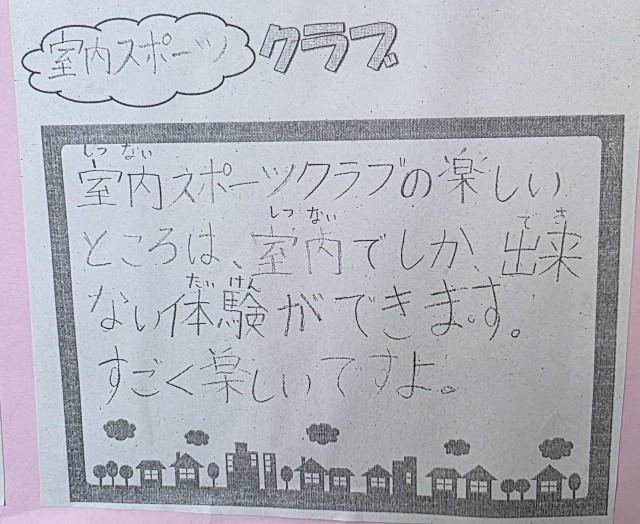 室内スポーツ クラブ
しつ ない
室内スポーツクラブの楽しい
しつ ない で き
ところは、室内でしか、出来
たい けん
ない体験ができます。
すごく楽しいですよ。